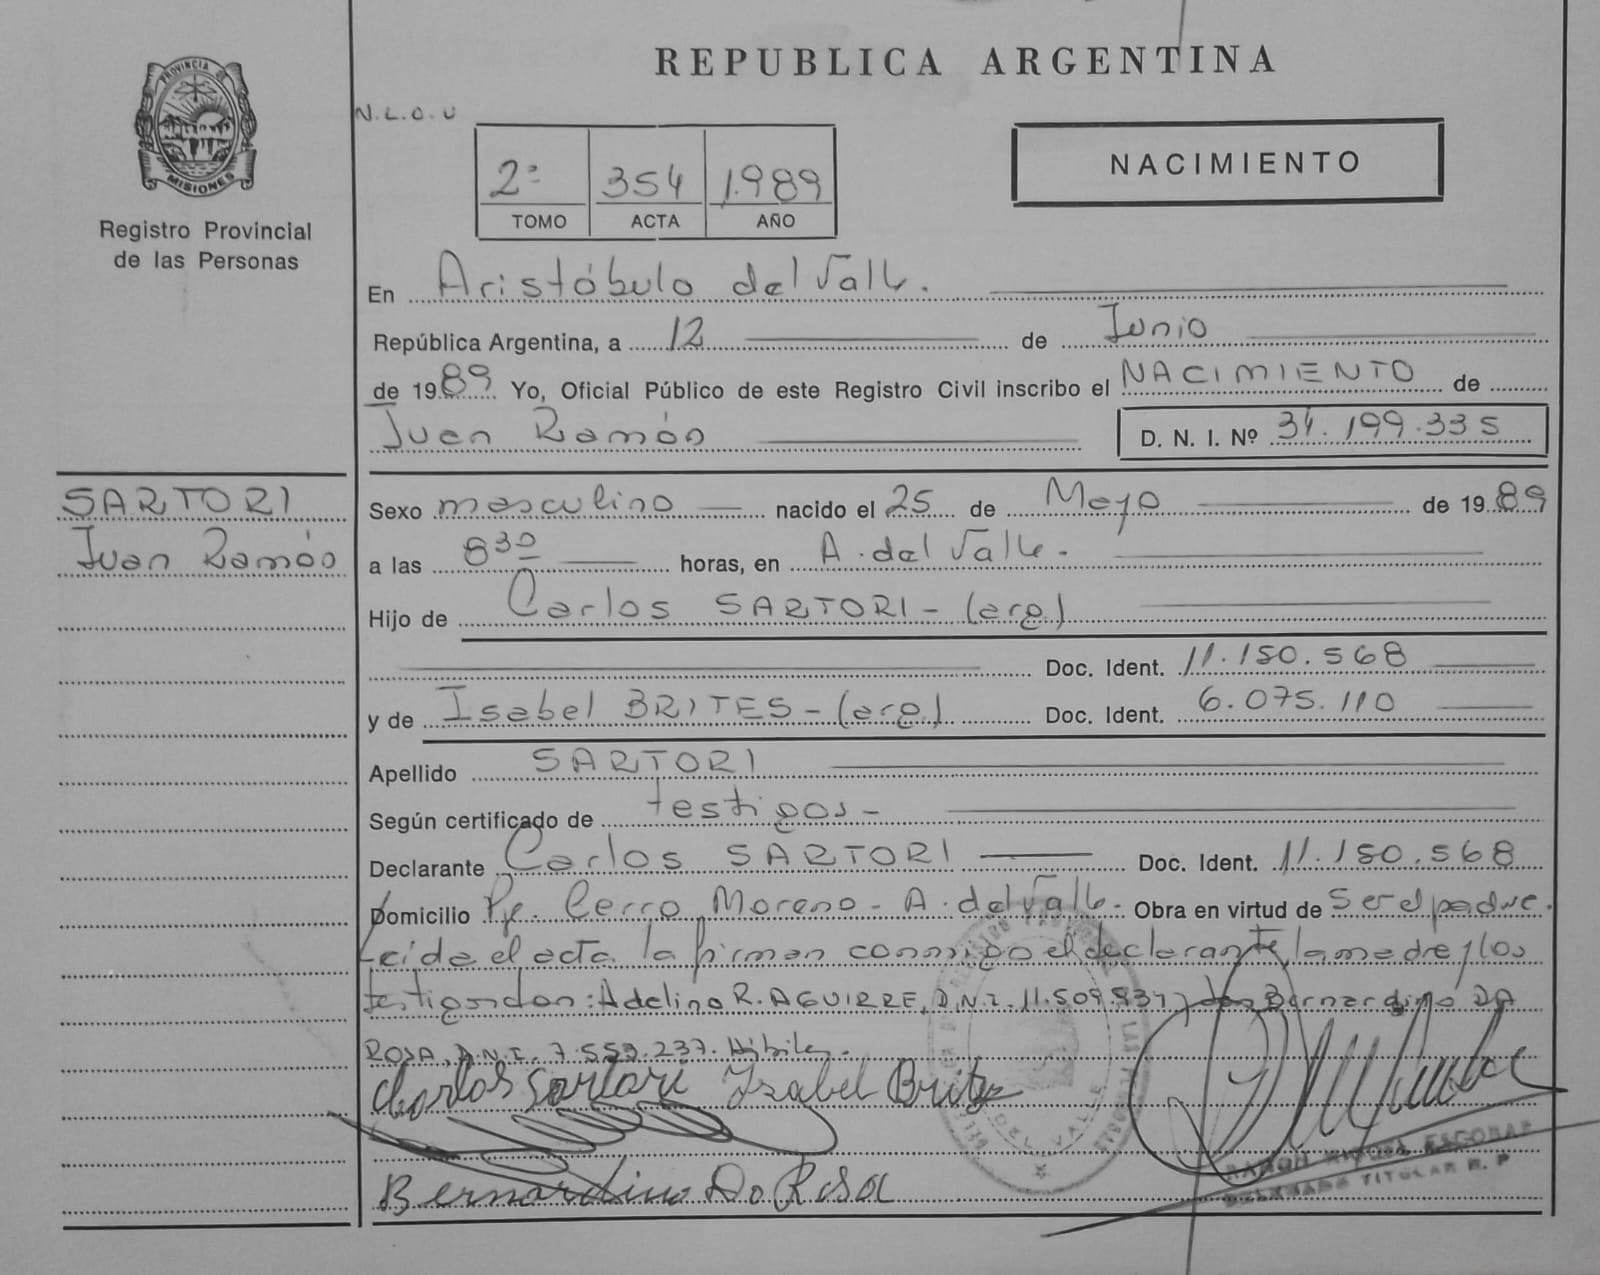 REPUBLICA ARGENTINA
PROVINCIA DE
MISIONES
Registro Provincial
de las Personas
N.L.O.U
2º 354 1.989
TOMO ACTA AÑO
NACIMIENTO
En Aristóbulo del Valle.
República Argentina, a 12 de Junio
de 1989 Yo, Oficial Público de este Registro Civil inscribo el NACIMIENTO de
Juan Ramón D. N. I. Nº 34.199.335
SARTORI
Juan Ramón
Sexo masculino nacido el 25 de Mayo de 1989
a las 8 30 horas, en A. del Valle.
Hijo de Carlos SARTORI - (arg)
Doc. Ident. 11.150.568
y de Isabel BRITES - (arg) Doc. Ident. 6.075.110
Apellido SARTORI
Según certificado de testigos -
Declarante Carlos SARTORI Doc. Ident. 11.150.568
Domicilio Pje. Cerro Moreno - A. del Valle. Obra en virtud de ser el padre.
Leida el acta la firman conmigo el declarante, la madre y los
testigos don: Adelino R. AGUIRRE, D.N.I. 11.509.837 y don Bernardino DA
ROSA, D.N.I. 7.559.237. Hábiles.
Carlos Sartori Isabel Brites
Bernardino Da Rosa
RAMON MIGUEL ESCOBAR
DELEGADO TITULAR R. P.